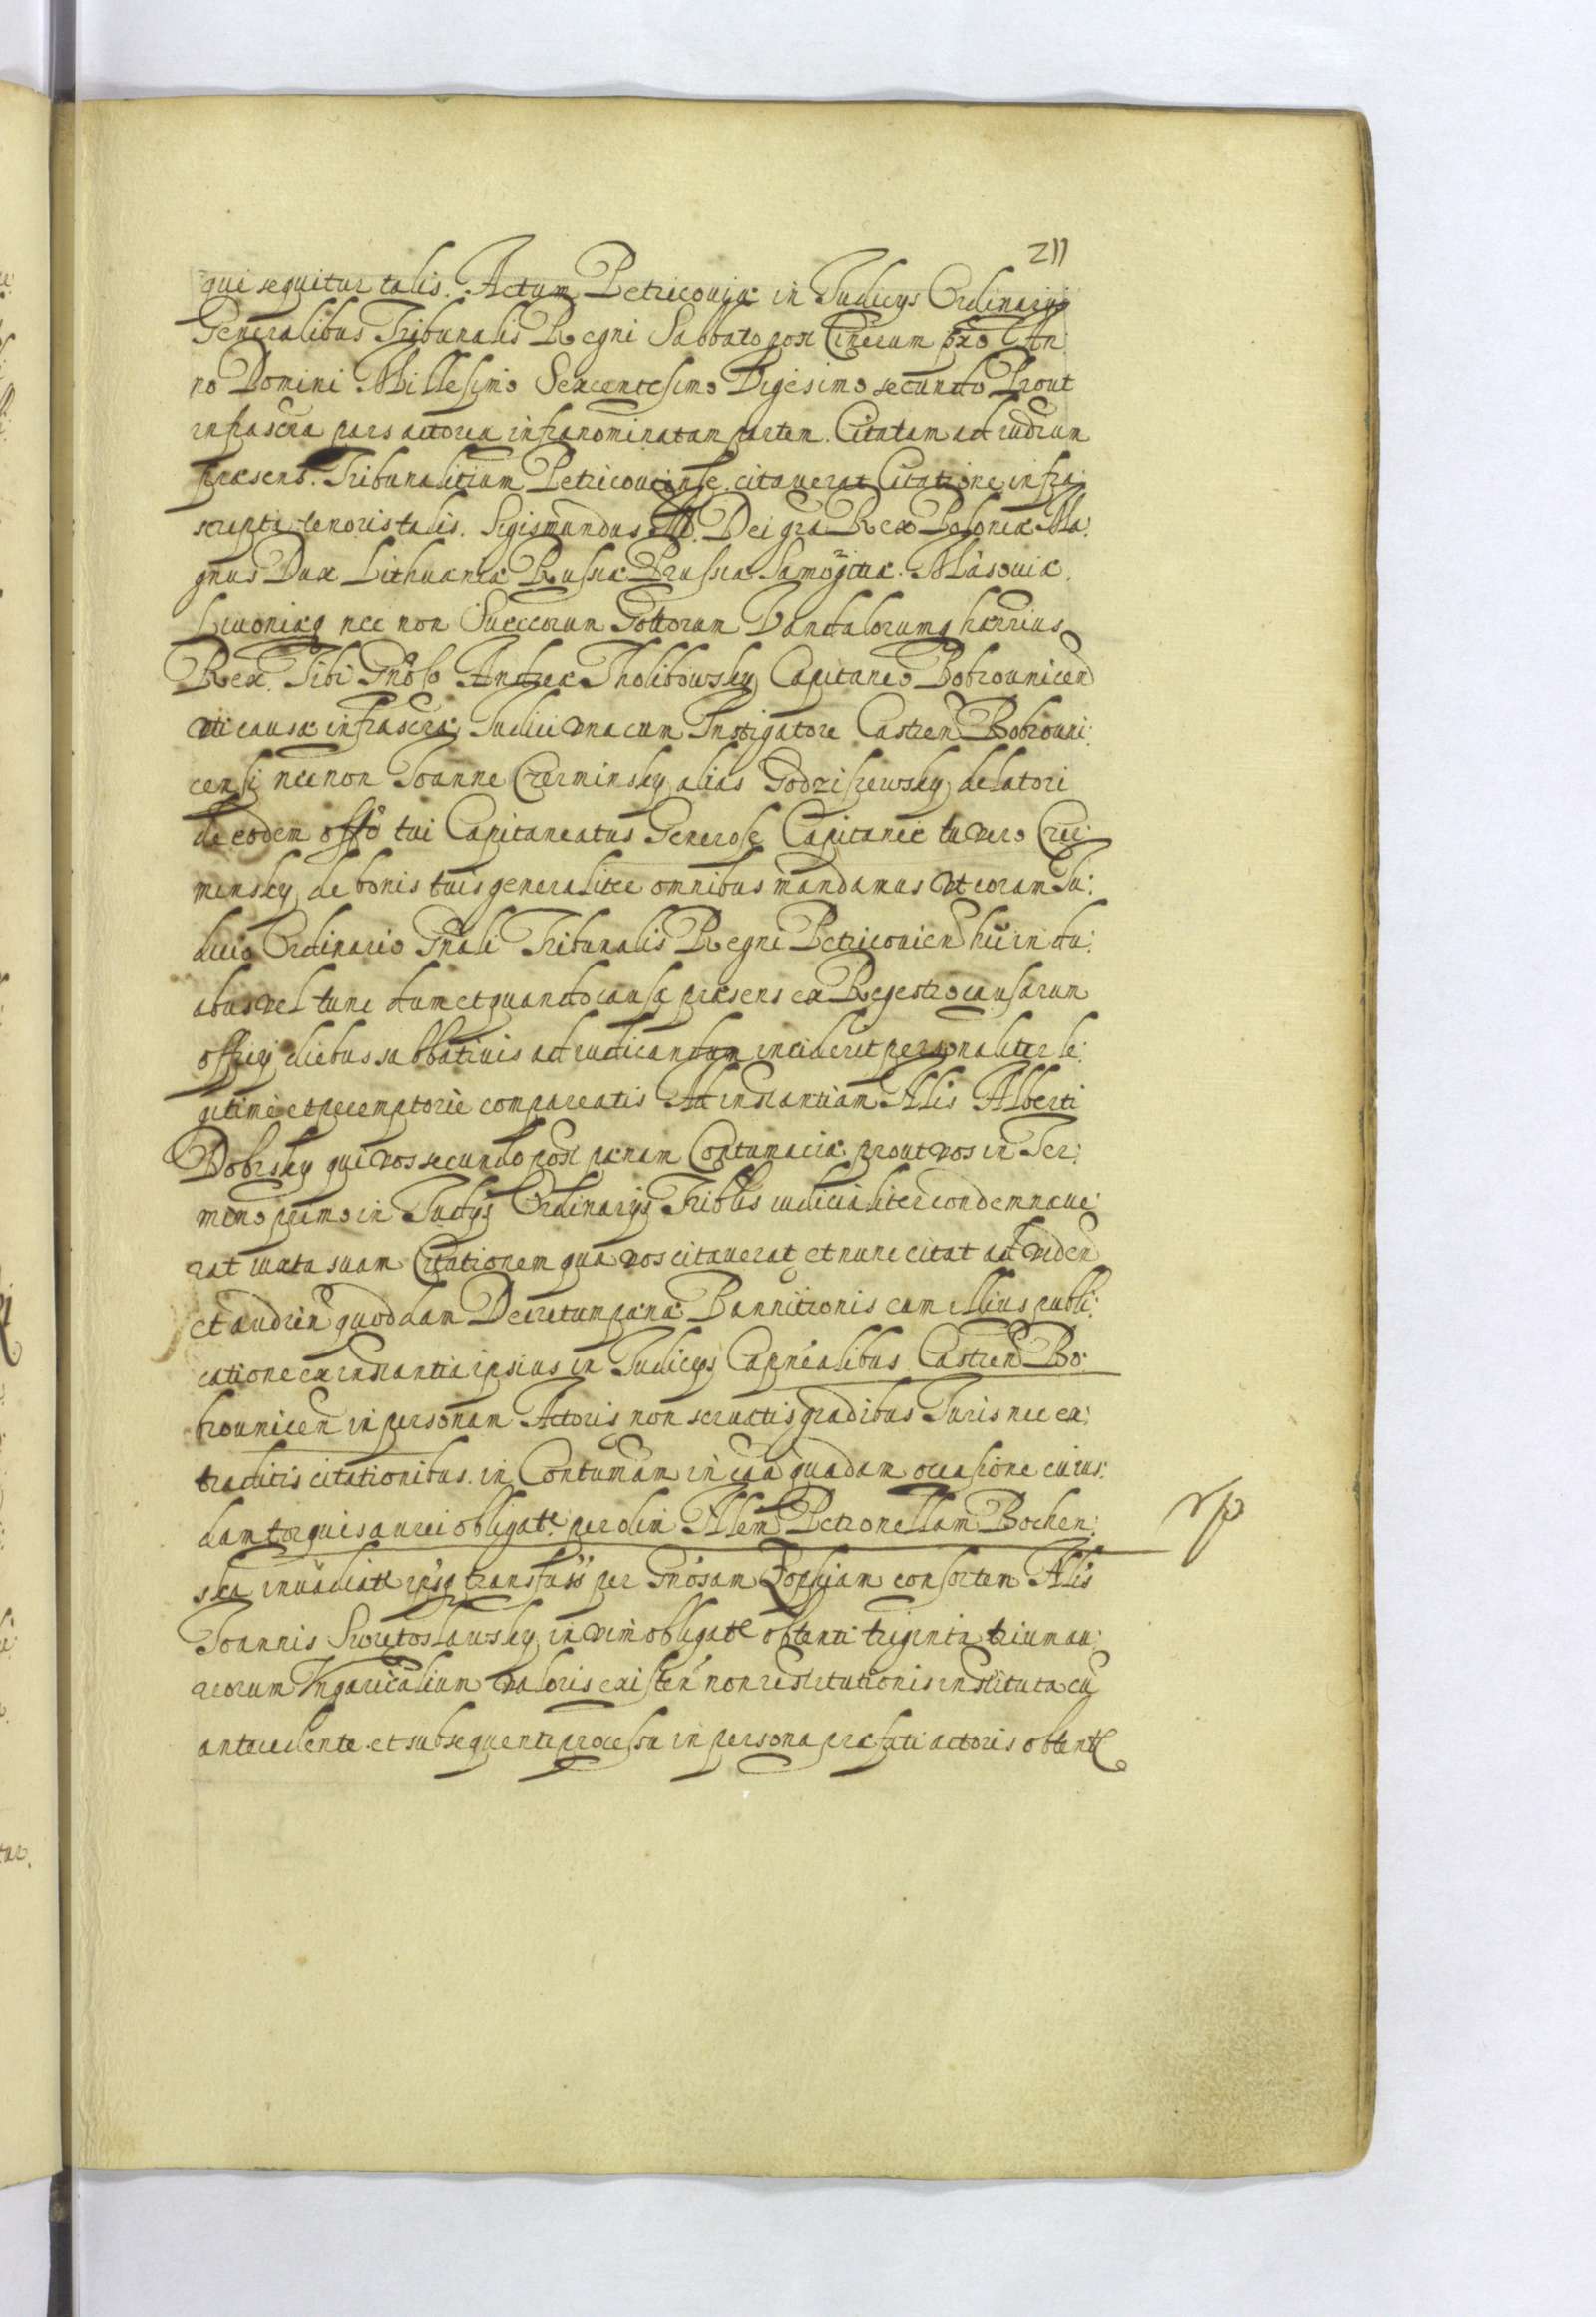 211
qui sequitur talis. Actum Petricouiæ in Judicijs Ordinarijs
Generalibus Tribunalis Regni Sabbato post Cinerum pro An:
no Domini Millesimo Sexcentesimo Vigesimo secundo Prout
infrascra pars actorea infranominatam partem Citatam ad iudicium
præsens Tribunalitium Petricouiense citauerat Citatione infra
scripta tenoris talis. Sigismundus III. Dei gra Rex Poloniæ Ma:
gnus Dux Lithuaniæ Russiæ Prussiæ Samogitiæ Masouiæ
Liuoniæq nec non Sueccorum Gottorum Vandalorumq hæred̃rius
Rex. Tibi Gnõso Andreæ Tholibowsky Capitaneo Bobrounicen
uti causæ infrascræ Judici una cum Instigatore Castren Bobrouni:
censi necnon Joanne Czerminsky alias Godziszewsky delatori
de eodem offõ tui Capitaneatus Generose Capitanee tu vero Czer:
minsky de bonis tuis generaliter omnibus mandamus Ut coram Ju:
dicio Ordinario Gnali Tribunalis Regni Petricouien hic in du:
abus vel tunc dum et quando causa præsens ex Regestro causarum
officij diebus sabbatiuis ad iudicandum inciderit personaliter le:
gitime et peremptorie compareatis Ad instantiam Nlis Alberti
Dobrsky qui vos secundo post pænam Contumaciæ prout vos in Ter:
mino primo in Judijs Ordinarijs Triblis iudicialiter condemnaue:
rat iuxta suam Citationem qua vos citauerat et nunc citat ad viden
et audien quoddam Decretum pænæ Bannitionis eam illius publi:
catione ex instantia ipsius in Judicijs Capnealibus Castren Bo:
brounicen in personam Actoris non seruatis gradibus Juris nec ex:
traditis citationibus in Contumam in caã quadam occasione cuius:
dam torquis aurei obligati per olim Nlem Petronellam Bochen:
ska inuadiati ipsiq transfusi per Gnosam Zophiam consortem Nlis
Joannis Swietoslawsky in vim obligati obtenti triginta trium au:
reorum Vngaricalium valoris existen non restitutionis instituta cũ
antecedente et subsequenti processu in persona præfati actoris obtenti